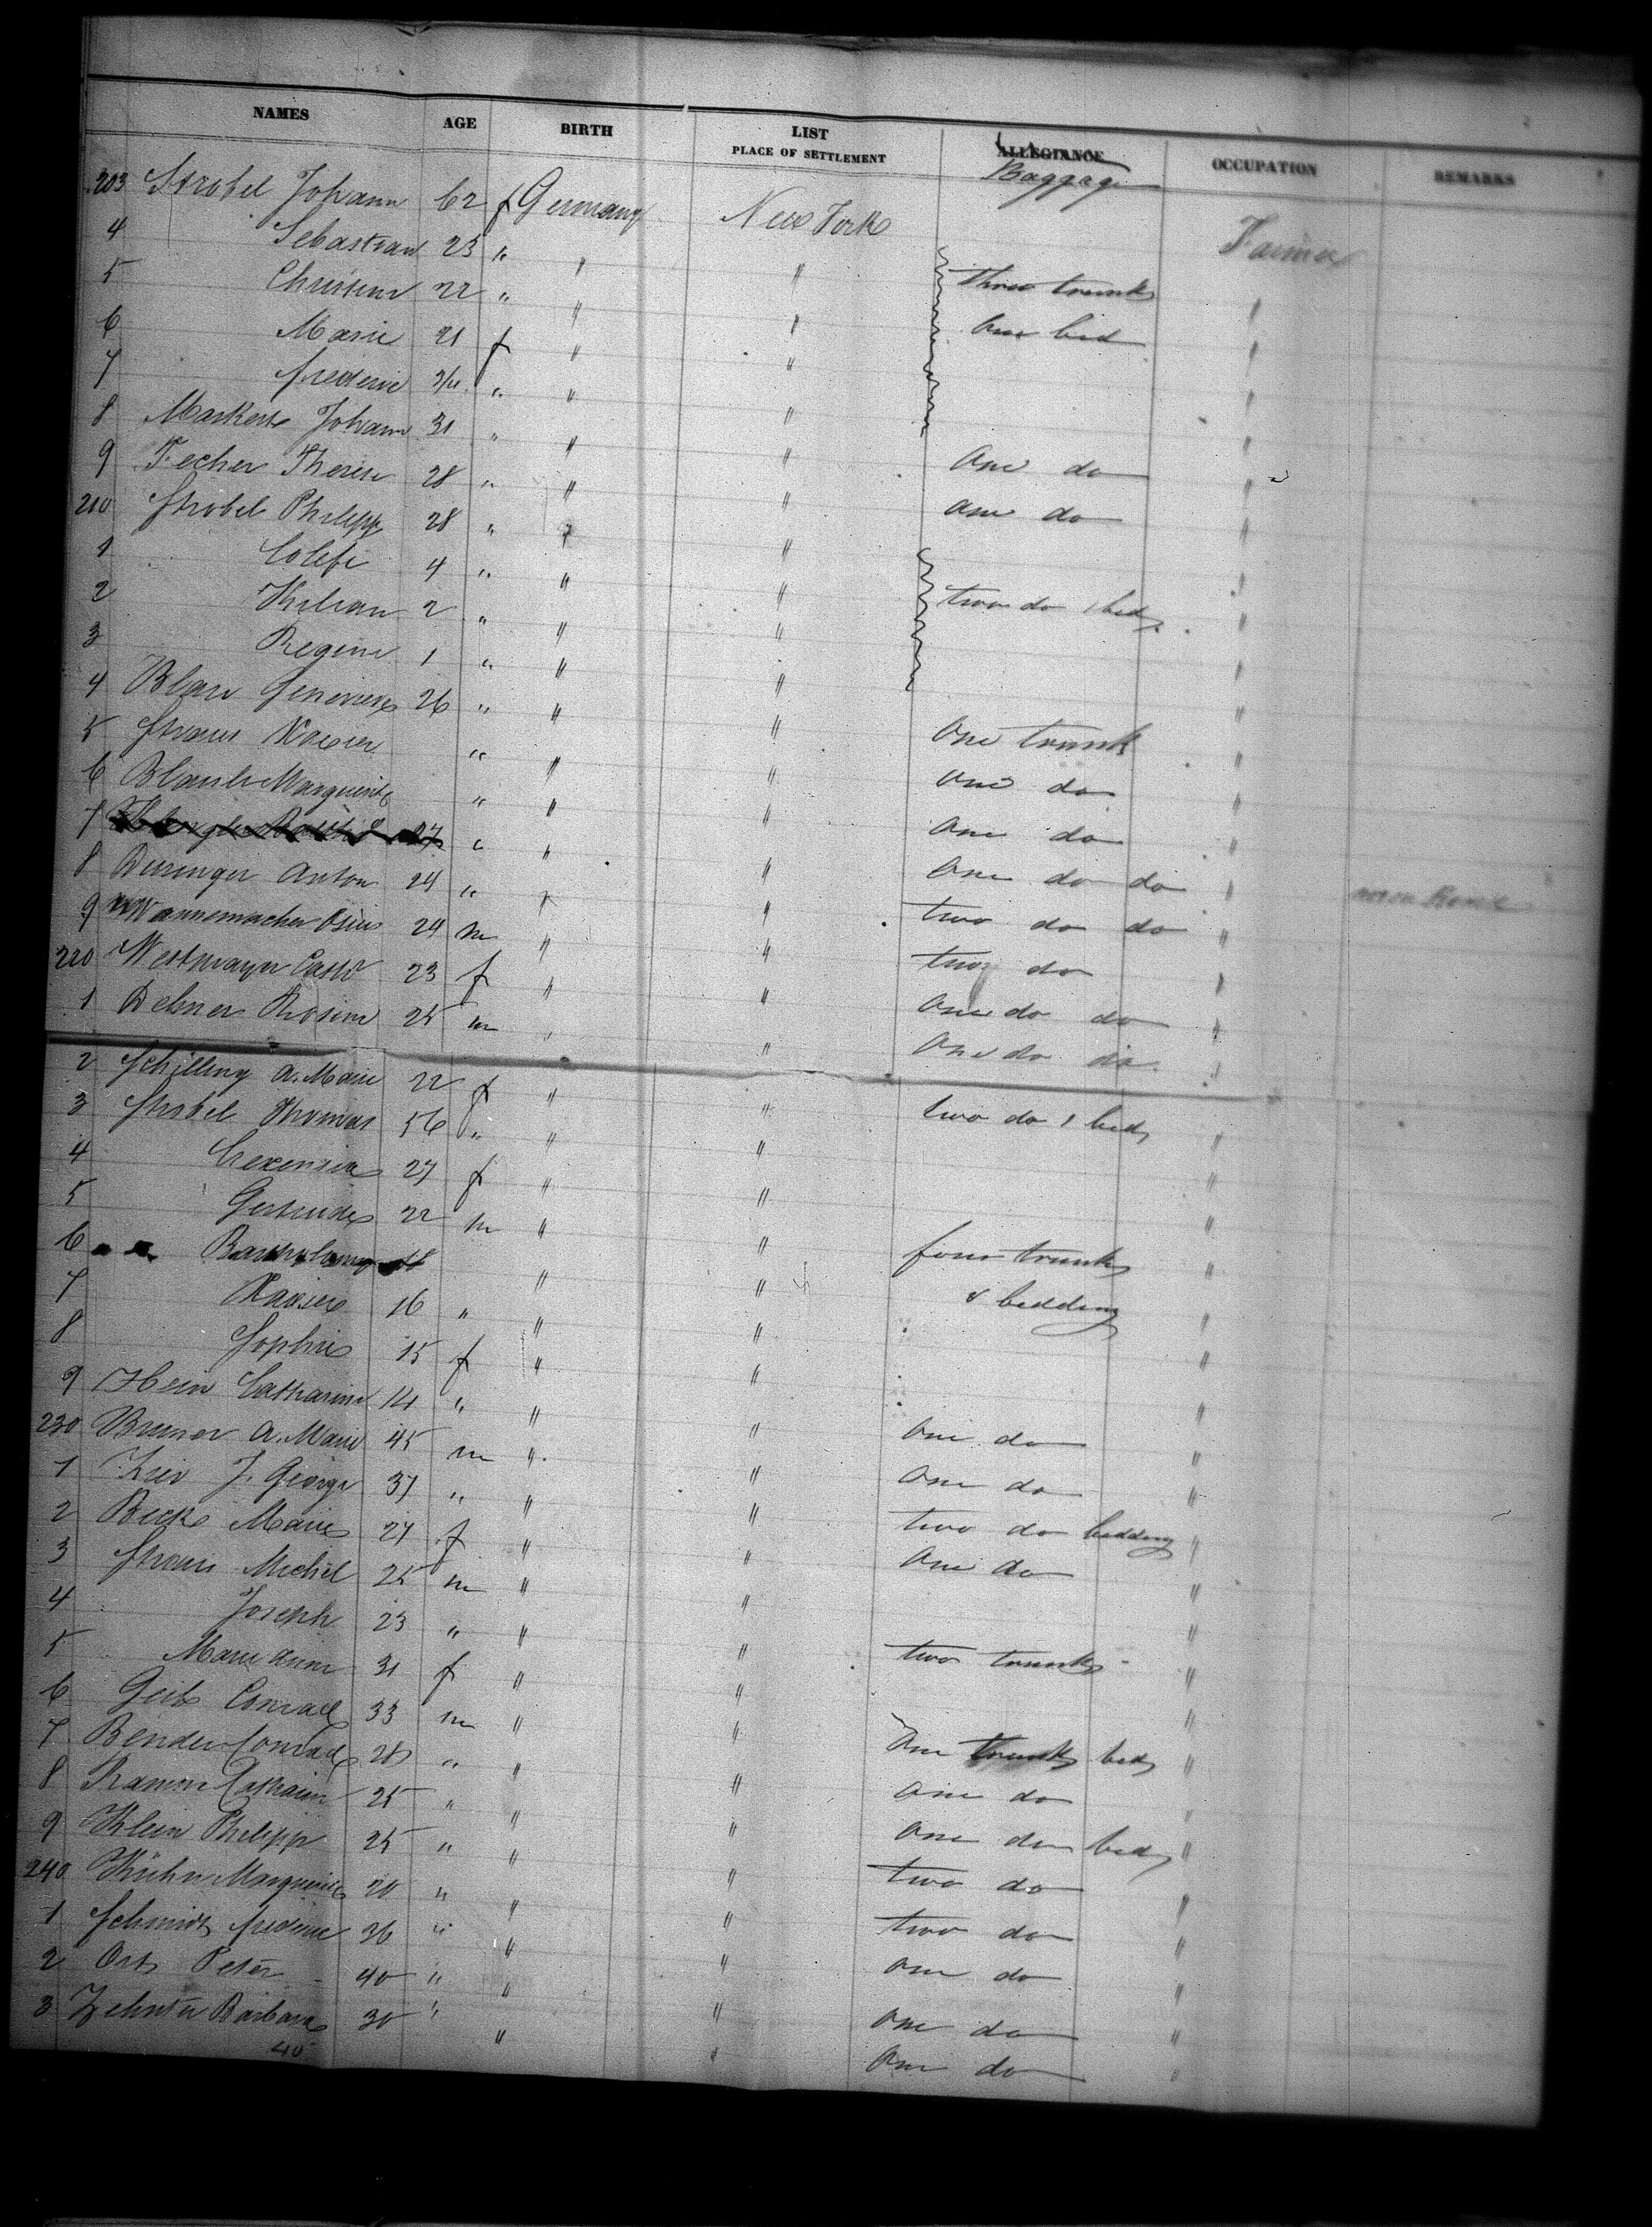 NAMES AGE BIRTH LIST PLACE OF SETTLEMENT ALLEGIANCE OCCUPATION REMARKS
Baggage
203 Strobel Johann 62 f Germany New York Farmer
4 Sebastian 23 " " "
5 Christine 22 " " " three trunks "
6 Marie 21 f " " One bed "
7 frederic 3/4 " " " "
8 Markert Johann 31 " " " "
9 Fecher Therese 28 " " " One do "
210 Strobel Philipp 28 " " " One do "
1 4 " " " "
2 Kilian 2 " " " two do 1 bed "
3 Regine 1 " " " "
4 Blau Genevieve 26 " " " "
5 Straus Xavier " " " One trunk "
6 Marguerite " " " One do "
7 27 " " " One do "
8 Anton 24 " " " One do do "
9 Wannemacher 24 m " " two do do "
220 23 f " " two do "
1 Dehner Rosine 25 m " " One do do "
2 Schilling A. Marie 22 f " " One do do "
3 Strobel Thomas 56 " " " two do 1 bed "
4 Crexensia 27 f " " "
5 Gertrude 22 m " " "
6 Bartholomy " " four trunks "
7 Xavier 16 " " " & bedding "
8 Sophie 15 f " " "
9 Catharine 14 " " " "
230 A. Marie 45 m " " One do "
1 J. George 37 " " " One do "
2 Beck Marie 27 f " " two do bedding "
3 Straus Michel 25 m " " One do "
4 Joseph 23 " " " "
5 Marie Anne 31 f " " two trunks "
6 Geib Conrad 33 m " " "
7 Bender Conrad 28 " " " One trunk bed "
8 25 " " " One do "
9 Klein Philipp 25 " " " One do bed "
240 Kühn Marguerite 20 " " " two do "
1 Schmidt frederic 36 " " " two do "
2 Orth Peter 40 " " " One do "
3 Zehnter Barbara 30 " " " One do "
40 One do "